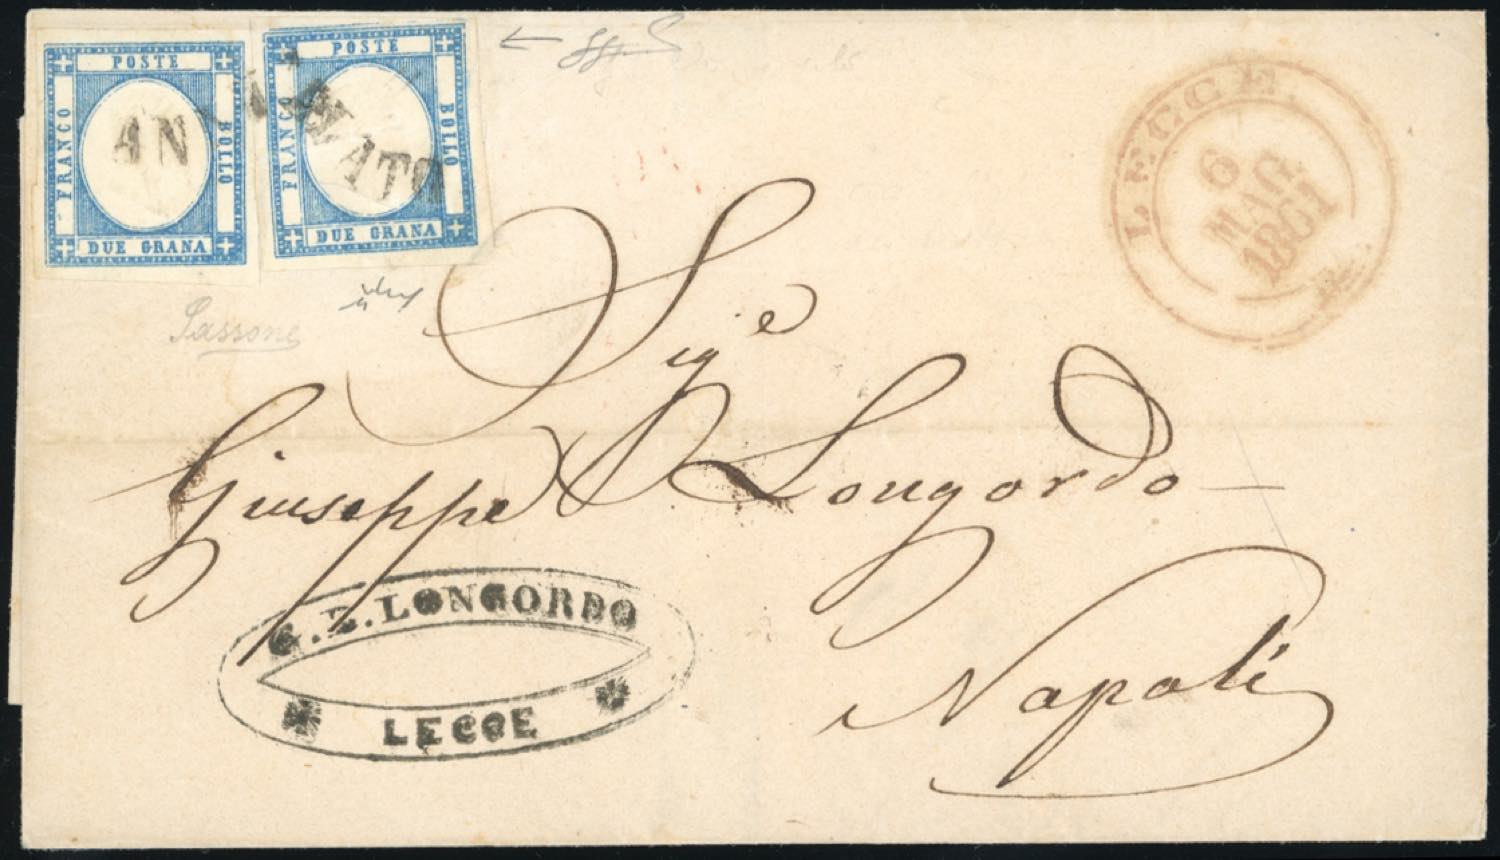 POSTE
FRANCO
BOLLO
DUE GRANA
POSTE
FRANCO
BOLLO
DUE GRANA
ANNULLATO
LECCE.
6
MAG.
1861
Sassone
Sig.e
Giuseppe Longordo
Napoli
G. B. LONGORDO
LECCE